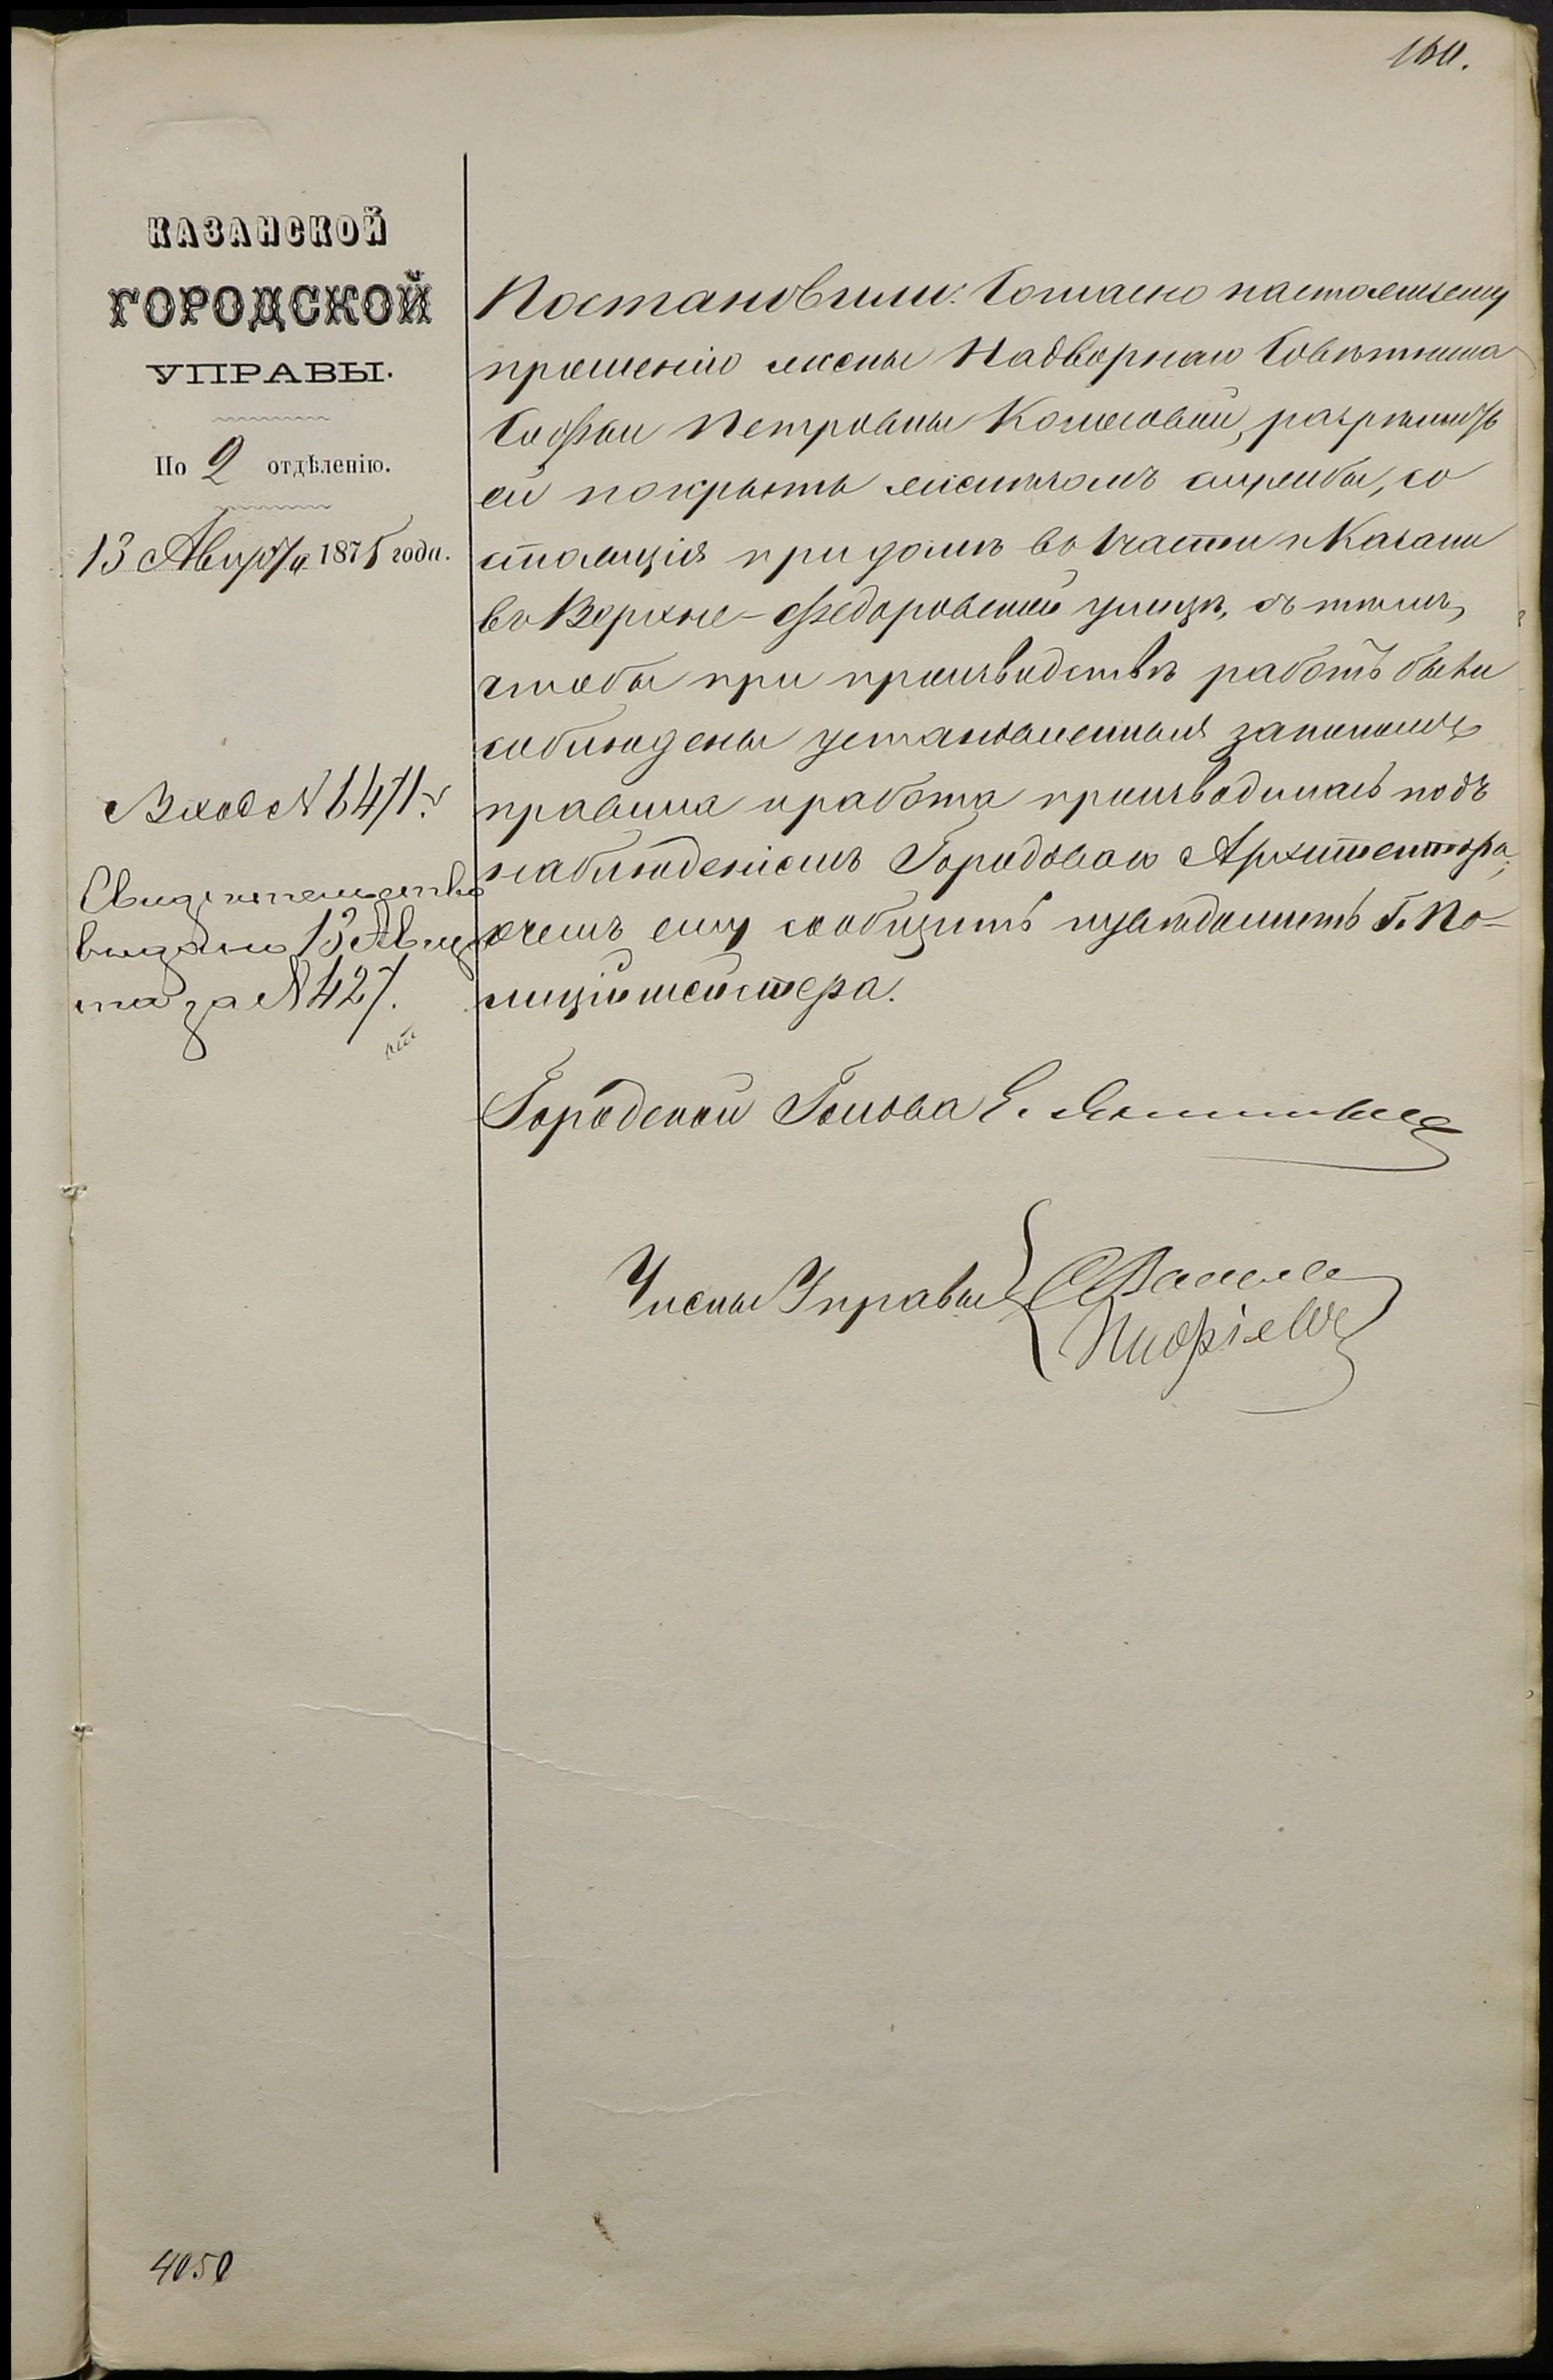 160.
КАЗАНСКОЙ
ГОРОДСКОЙ
УПРАВЫ.
По 2 отдѣленію.
13 Августа 1875 года.
Постановили: Согласно настоящему
прошенію жены Надворнаго Совѣтника
Софьи Петровны Колесовой, разрѣшить
ей покрыть желѣзомъ службы, со
стоящія при домѣ во 1 части г. Казани
въ Верхне-Федоровской улицѣ, съ тѣмъ,
чтобы при производствѣ работъ были
соблюдены установленныя закономъ
правила и работа производилась подъ
наблюденіемъ Городоваго Архитектора,
о чемъ ему сообщить и увѣдомить Г. По-
лиціймейстера.
Вход № 6471.
Свидѣтельство
выдано 13 Авгус
та за № 427.
Городской Голова Е.
Члены Управы
4050